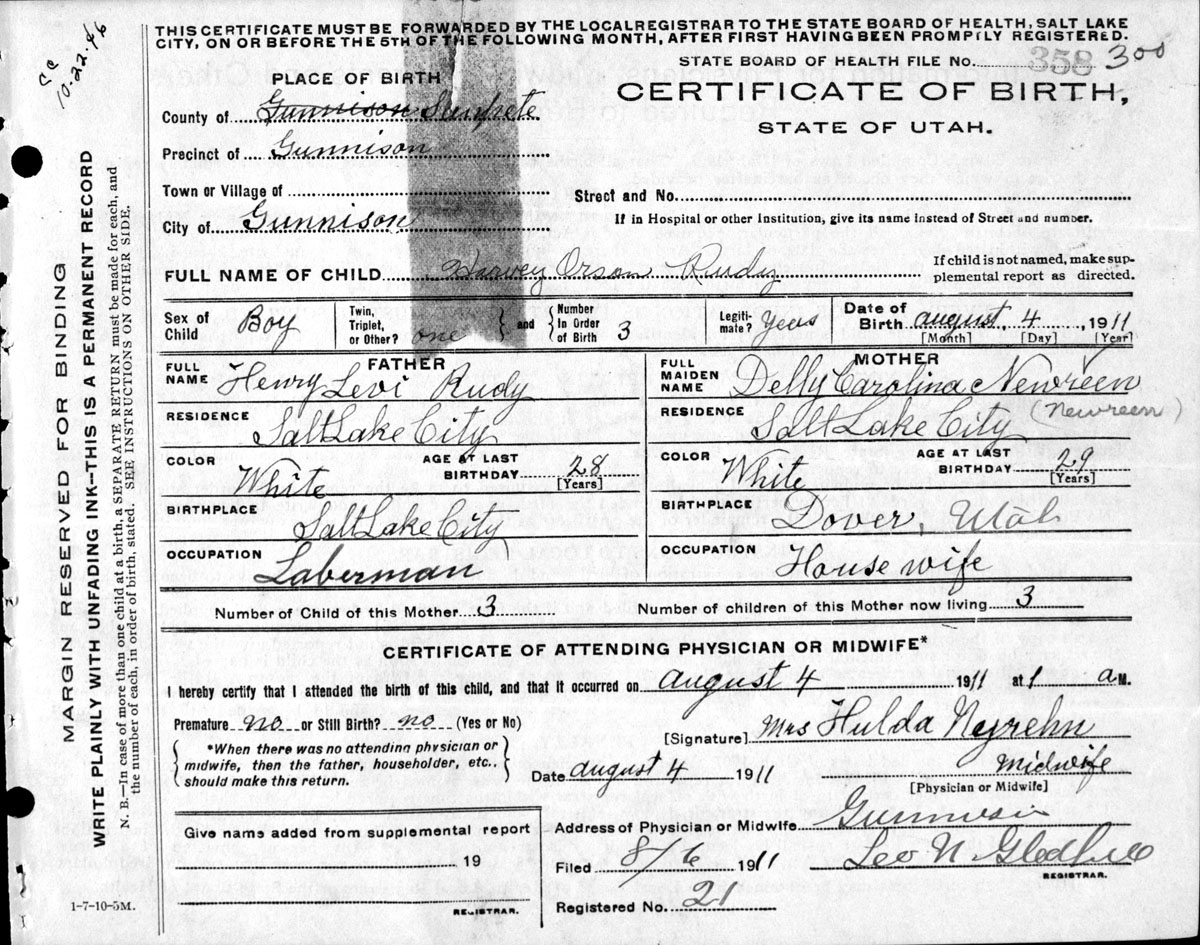 THIS CERTIFICATE MUST BE FORWARDED BY THE LOCAL REGISTRAR TO THE STATE BOARD OF HEALTH, SALT LAKE
CITY, ON OR BEFORE THE 5TH OF THE FOLLOWING MONTH, AFTER FIRST HAVING BEEN PROMPTLY REGISTERED.
10.22.46
STATE BOARD OF HEALTH FILE NO. 358 300
PLACE OF BIRTH
CERTIFICATE OF BIRTH,
STATE OF UTAH.
County of Gunnison Sanpete
Precinct of Gunnison
Town or Village of
Street and No.
City of Gunnison
If in Hospital or other Institution, give its name instead of Street and number.
FULL NAME OF CHILD Harvey Orson Rudy
If child is not named, make sup-
plemental report as directed.
Sex of Child Boy
Twin, Triplet, or Other? one
and
Number In Order of Birth 3
Legiti- mate? Yeas
Date of Birth August, 4, 1911
[Month] [Day] [Year]
FATHER
FULL NAME Henry Levi Rudy
RESIDENCE Salt Lake City
COLOR White AGE AT LAST BIRTHDAY 28 [Years]
BIRTHPLACE Salt Lake City
OCCUPATION Laberman
MOTHER
FULL MAIDEN NAME Delly Carolina Newreen
RESIDENCE Salt Lake City (Newreen)
COLOR White AGE AT LAST BIRTHDAY 29 [Years]
BIRTHPLACE Dover, Utah
OCCUPATION House wife
Number of Child of this Mother 3 Number of children of this Mother now living 3
CERTIFICATE OF ATTENDING PHYSICIAN OR MIDWIFE*
I hereby certify that I attended the birth of this child, and that it occurred on August 4 1911 at 1 a M.
Premature no or Still Birth? no (Yes or No)
[Signature] Mrs Hulda Neyrehn
*When there was no attending physician or
midwife, then the father, householder, etc.,
should make this return.
Date August 4 1911
Midwife
[Physician or Midwife]
Give name added from supplemental report
19
REGISTRAR.
Address of Physician or Midwife Gunnison
Filed 8/6 1911 Leo N Gledhill
REGISTRAR.
Registered No. 21
1-7-10-5M.
MARGIN RESERVED FOR BINDING
WRITE PLAINLY WITH UNFADING INK—THIS IS A PERMANENT RECORD
N. B.—In case of more than one child at a birth, a SEPARATE RETURN must be made for each, and
the number of each, in order of birth, stated. SEE INSTRUCTIONS ON OTHER SIDE.